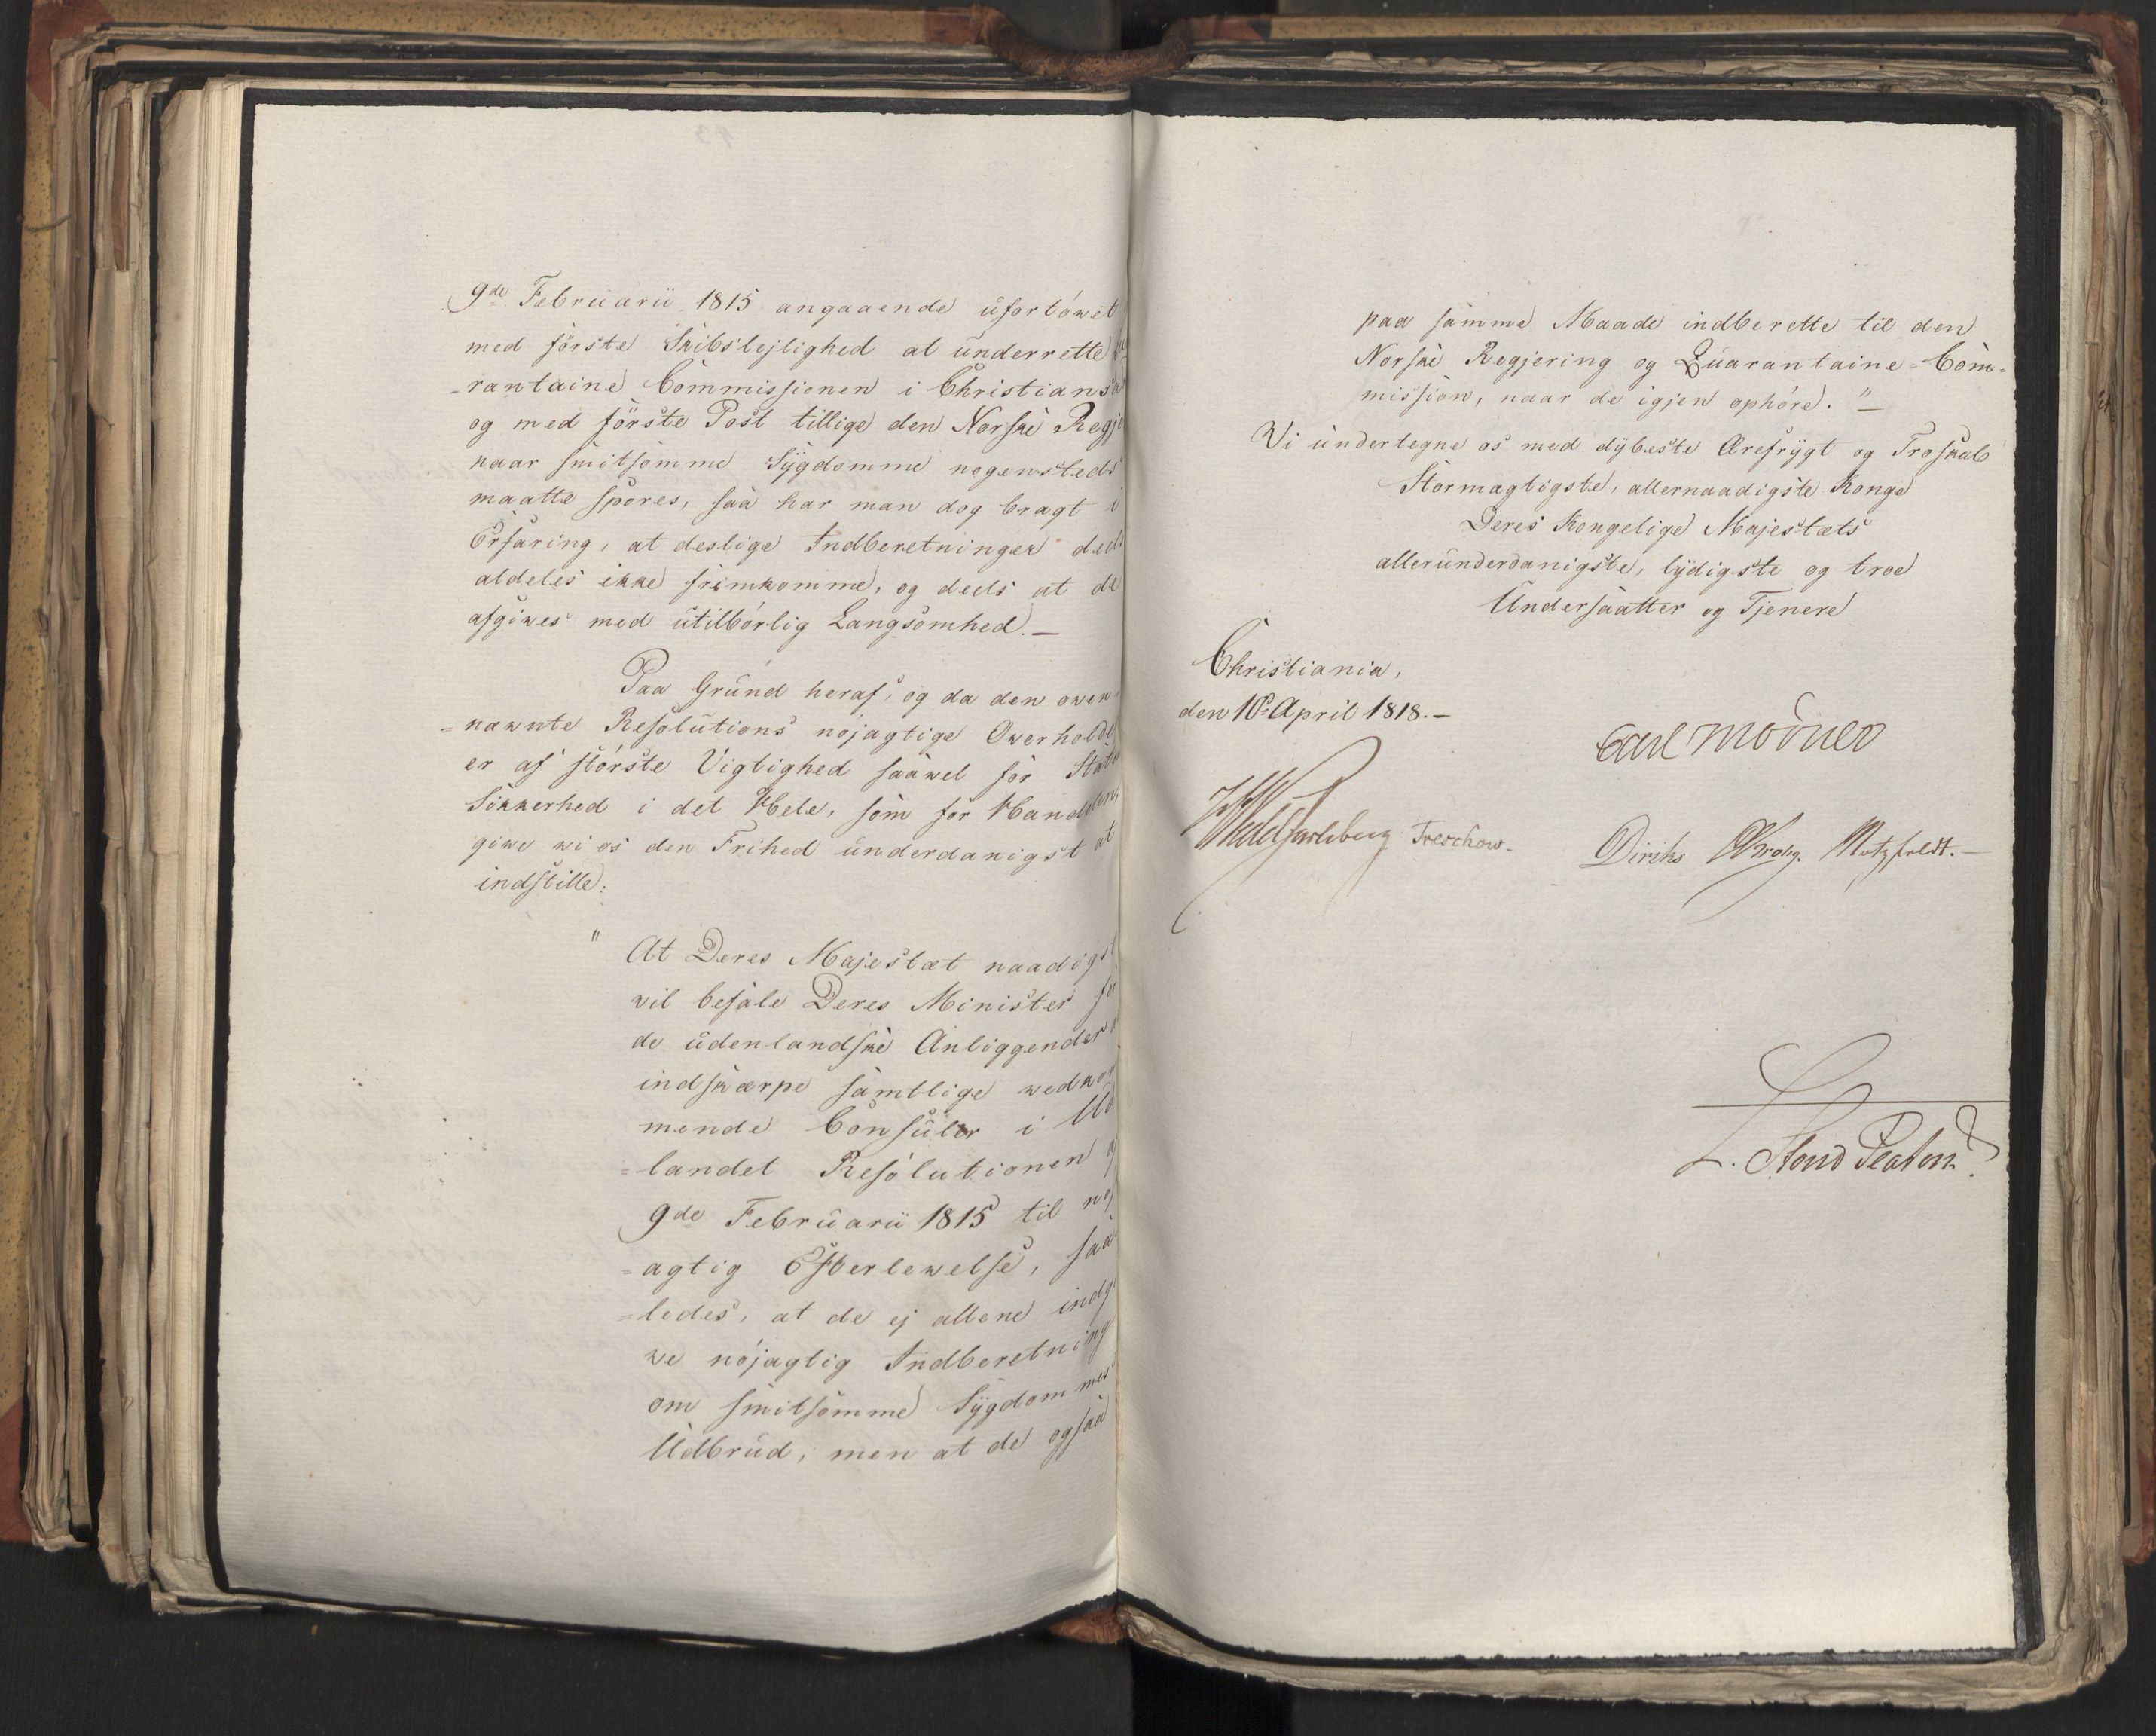 9de Februarii 1815 angaaende ufortöwet
med förste Skibslejlighed at underrette
-rantaine Commissionen i Christians
og med förste Post tillige den Norske Regje
naar smitsomme Sÿgdomme nogensteds
maatte spores, saa har man dog bragt i
Erfaring, at deslige Indberetninger deels
aldeles ikke fremkomme, og deels at de
afgiwes med utilbörlig Langsomhed.—
Paa Grund heraf, og da den owen
=nævnte Resolutions nöjagtige Owerholde
er af störste Vigtighed saawel for State
Sikkerhed i det Hele, som for Handelen,
giwe wi os den Frihed underdanigst at
indstille:
" At Deres Majestæt naadigst
wil befale Deres Minister for
de udenlandske Anliggender
indskærpe samtlige wedkom
mende Consuler i Ud
=landet Resolutionen
9de Februarii 1815 til nöj
=agtig Efterlewelse, saa
=ledes, at de ej allene indg
we nöjagtig Indberetning
om smitsomme Sÿgdommes
Udbrud, men at de ogsaa
paa samme Maade indberette til den
Norske Regjering og Quarantaine=Com=
mission, naar de igjen ophöre."—
Vi undertegne os med dÿbeste Ærefrÿgt og Troskab
Stormægtigste, allernaadigste Konge
Deres Kongelige Majestæts
allerunderdanigste, lÿdigste og troe
Undersaatter og Tjenere
Christiania,
den 10de April 1818.—
Carl Mörner
Wedel Jarlsberg Treschow. Diriks Krohg. Motzfeldt.—
L.